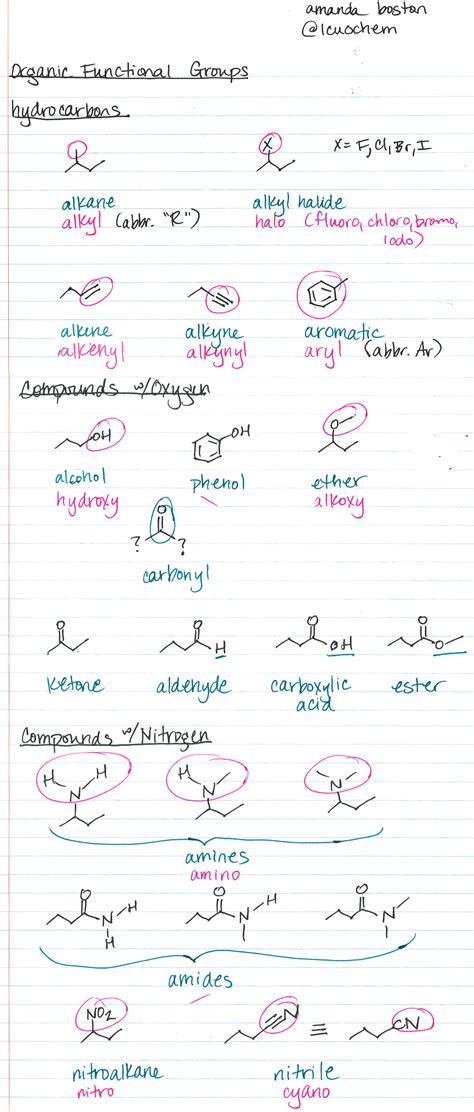 amanda boston
@lcuochem
Organic Functional Groups
hydrocarbons
X X = F, Cl, Br, I
alkane alkyl halide
alkyl (abbr. "R") halo (fluoro, chloro, bromo,
iodo)
alkene alkyne aromatic
alkenyl alkynyl aryl (abbr. Ar)
Compounds w/Oxygen
OH OH O
alcohol phenol ether
hydroxy alkoxy
O
? ?
carbonyl
O O O O
H OH O
ketone aldehyde carboxylic ester
acid
Compounds w/Nitrogen
H H H
N N N
amines
amino
O O O
N H N H N
H
amides
NO2 N CN
≡
nitroalkane nitrile
nitro cyano